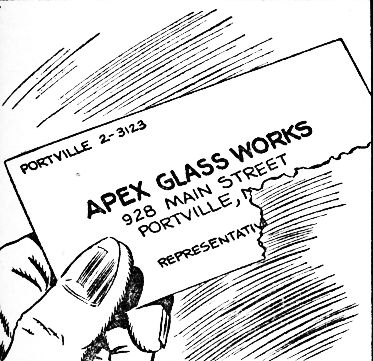 PORTVILLE 2-3123
APEX GLASS WORKS
928 MAIN STREET
PORTVILLE,
REPRESENTATIV